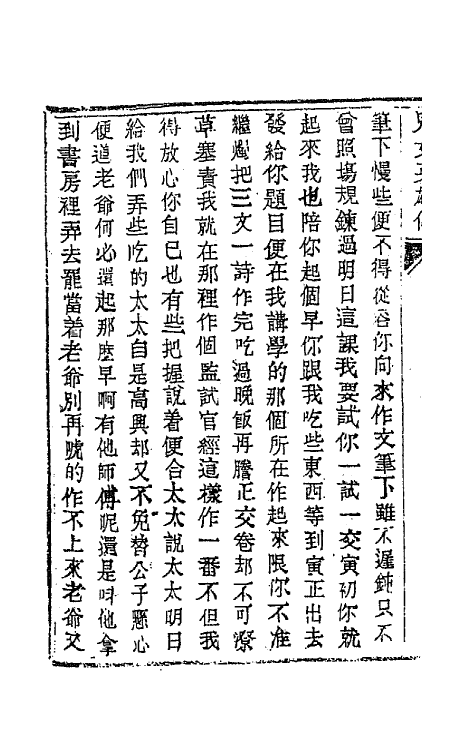 筆下慢些便不得從容你向來作文筆下雖不遲鈍只不
曾照塲規鍊過明日這課我要試你一試一交寅初你就
起來我也陪你起個早你跟我吃些東西等到寅正出去
發給你題目便在我講學的那個所在作起來限你不准
繼燭把三文一詩作完吃過晚飯再謄正交卷却不可潦
草塞責我就在那裡作個監試官經這樣作一番不但我
得放心你自己也有些把握說着便合太太說太太明日
給我們弄些吃的太太自是高興却又不免替公子懸心
便道老爺何必還起那麽早啊有他師傅呢還是呌他拿
到書房裡弄去罷當着老爺別再唬的作不上來老爺又